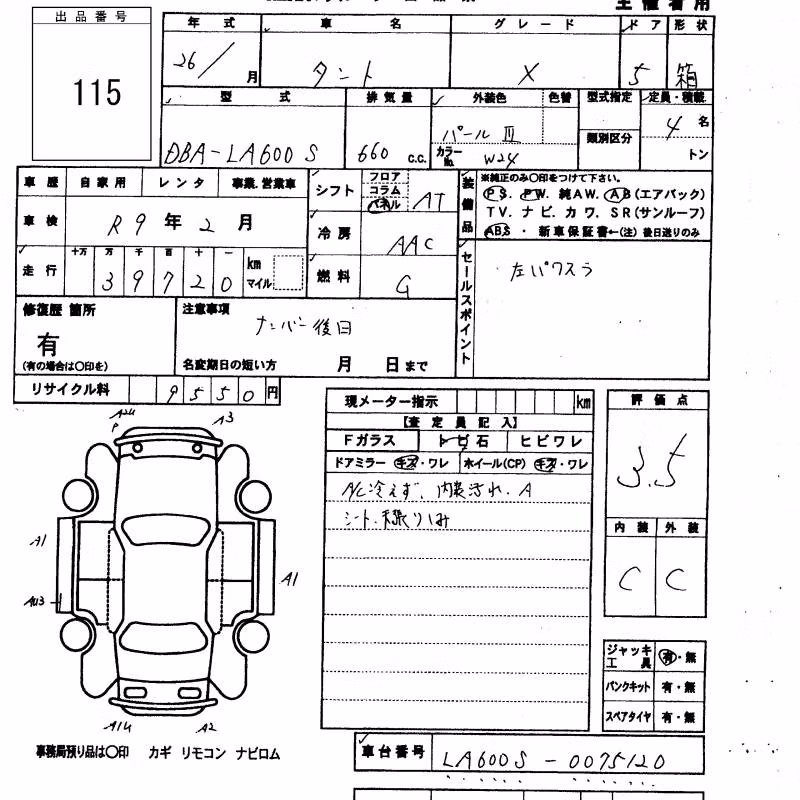 出品番号
115
主催者用
年 式 車 名 グ レ ー ド ドア 形状
26/ 月 タント X 5 箱
型 式 排気量 外装色 色替 型式指定 定員・積載
DBA-LA600S 660 c.c. パール Ⅲ 類別区分 4 名
カラーNo. W24 トン
車歴 自家用 レンタ 事業.営業車
車検 R9 年 2 月
走行 十万 万 千 百 十 一
39720 km マイル
シフト フロア コラム パネル AT
冷房 AAC
燃料 G
装備品 ※純正のみ〇印をつけて下さい。
PS. PW. 純AW. AB(エアバック)
TV. ナビ. カワ. SR(サンルーフ)
ABS ・ 新車保証書←(注) 後日送りのみ
セールスポイント 左パワスラ
修復歴 箇所
有
(有の場合は〇印を)
注意事項
ナンバー後日
名変期日の短い方 月 日まで
リサイクル料 9550 円
現メーター指示 km
【査定員記入】
Fガラス トビ石 ヒビワレ
ドアミラー キズ・ワレ ホイール(CP) キズ・ワレ
A/C冷えず、内装汚れ.A
シート、天張りしみ
評価点
3.5
内装 外装
C C
A2U
P
A3
A1
AU3
A1
A1U
A2
ジャッキ工具 有・無
パンクキット 有・無
スペアタイヤ 有・無
事務局預り品は〇印 カギ リモコン ナビロム
車台番号 LA600S-0075120